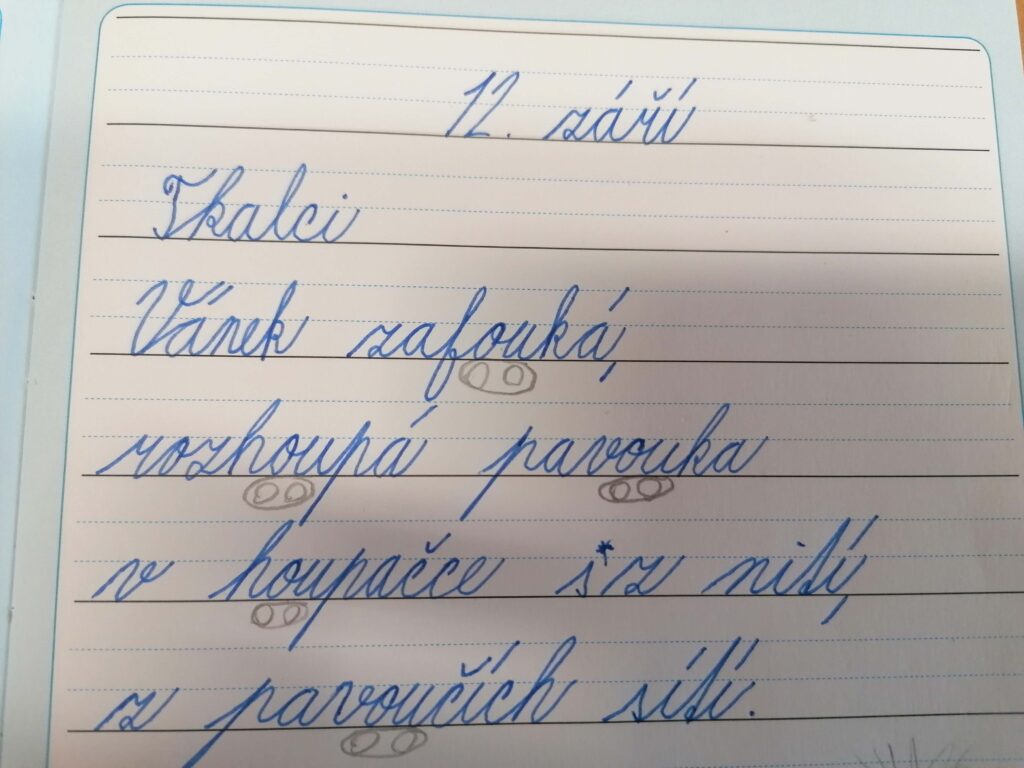 12. září
Tkalci
Vánek zafouká,
rozhoupá pavouka
v houpačce s* z nití,
z pavoučích sítí.